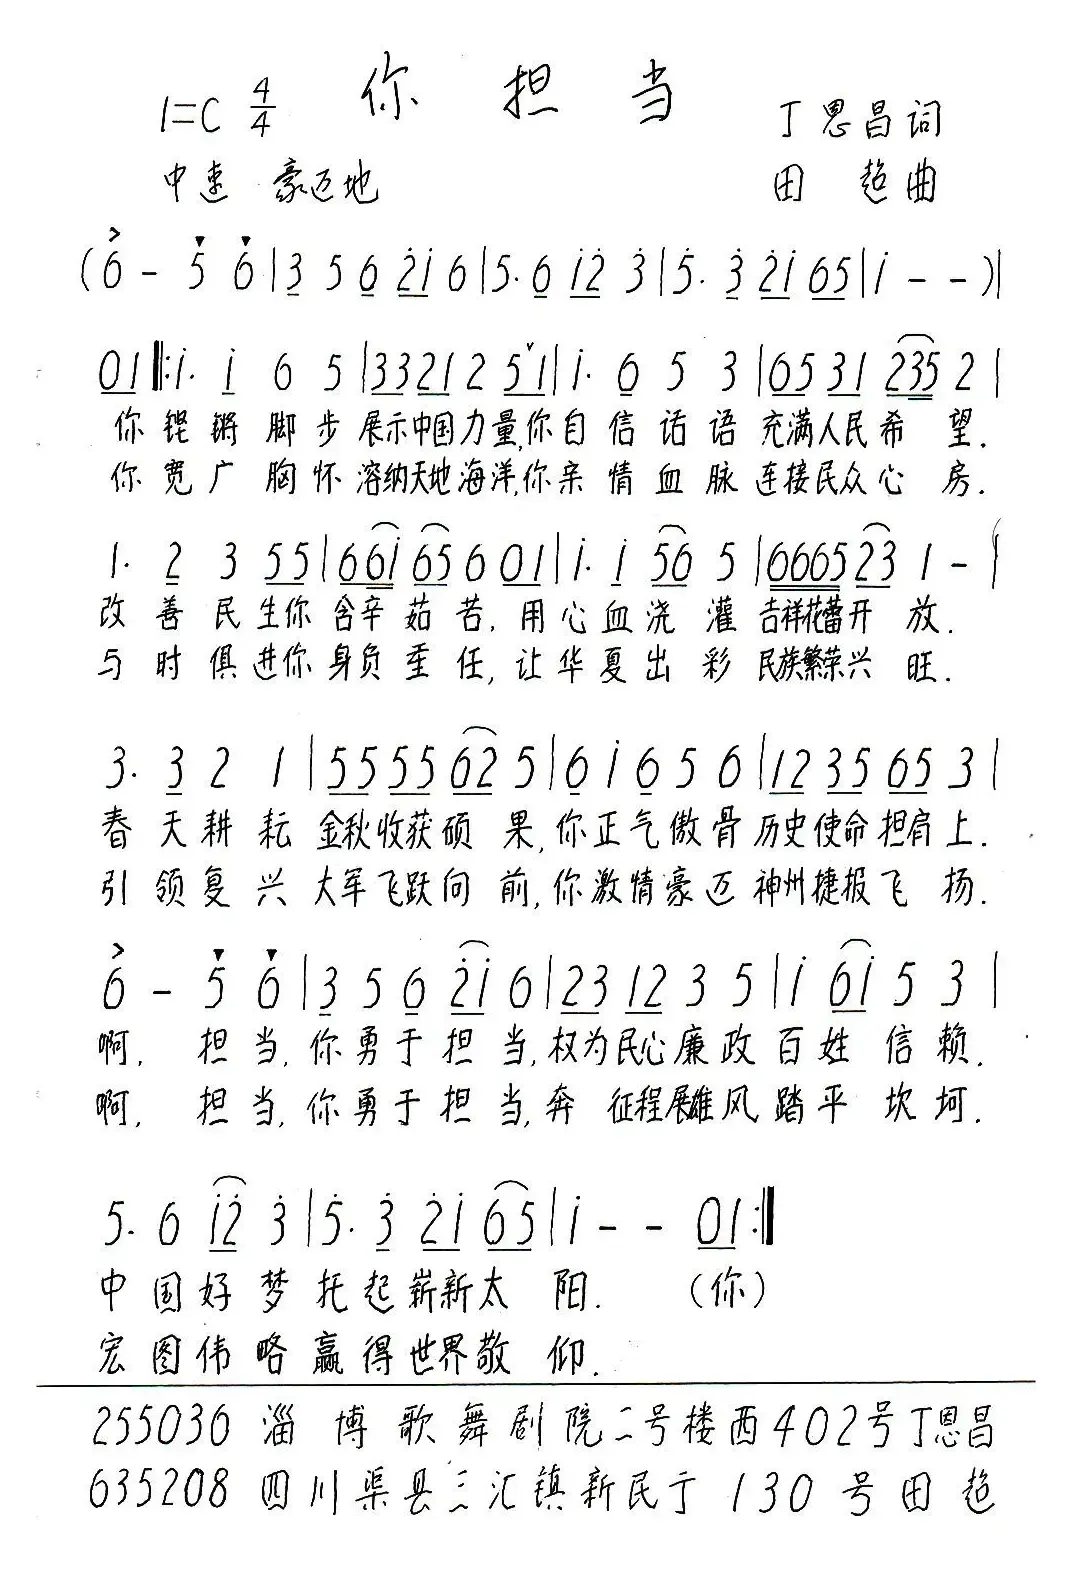 你 担 当
1=C 4/4 丁恩昌词
中速 豪迈地 田 超曲
(6 - 5 6 | 3 5 6 2̇1̇ 6 | 5· 6 1̇2̇ 3̇ | 5̇· 3̇ 2̇1̇ 65 | 1̇ - - ) |
01 ‖: 1̇· 1̇ 6 5 | 33 21 2 5 1̇ | 1̇· 6 5 3 | 65 31 235 2 |
你 铿 锵 脚 步 展示中国力量,你自信话语 充满人民希 望.
你 宽 广 胸 怀 溶纳天地海洋,你亲情血脉 连接民众心 房.
1· 2 3 55 | 661̇ 65 6 01 | 1̇· 1̇ 56 5 | 6665 23 1 - |
改 善 民 生你 含辛茹 苦, 用心血浇 灌 吉祥花蕾开 放.
与 时 俱 进你 身负重 任, 让华夏出 彩 民族繁荣兴 旺.
3· 3 2 1 | 55 55 62 5 | 6 1̇ 6 5 6 | 12 35 65 3 |
春 天 耕 耘 金秋收获硕 果,你正气傲骨 历史使命担肩上.
引 领 复 兴 大军飞跃向 前,你激情豪迈 神州捷报飞 扬.
6 - 5 6 | 3 5 6 2̇1̇ 6 | 23 12 3 5 | 1̇ 61̇ 5 3 |
啊, 担 当,你勇于担 当,权为民心廉政百姓 信 赖.
啊, 担 当,你勇于担 当,奔 征程展雄风踏平 坎 坷.
5· 6 1̇2̇ 3̇ | 5̇· 3̇ 2̇1̇ 65 | 1̇ - - 01 :‖
中 国 好 梦 托 起 崭新太 阳. (你)
宏 图 伟 略 赢 得 世界敬 仰.
255036 淄博歌舞剧院二号楼西402号丁恩昌
635208 四川渠县三汇镇新民于130号田超